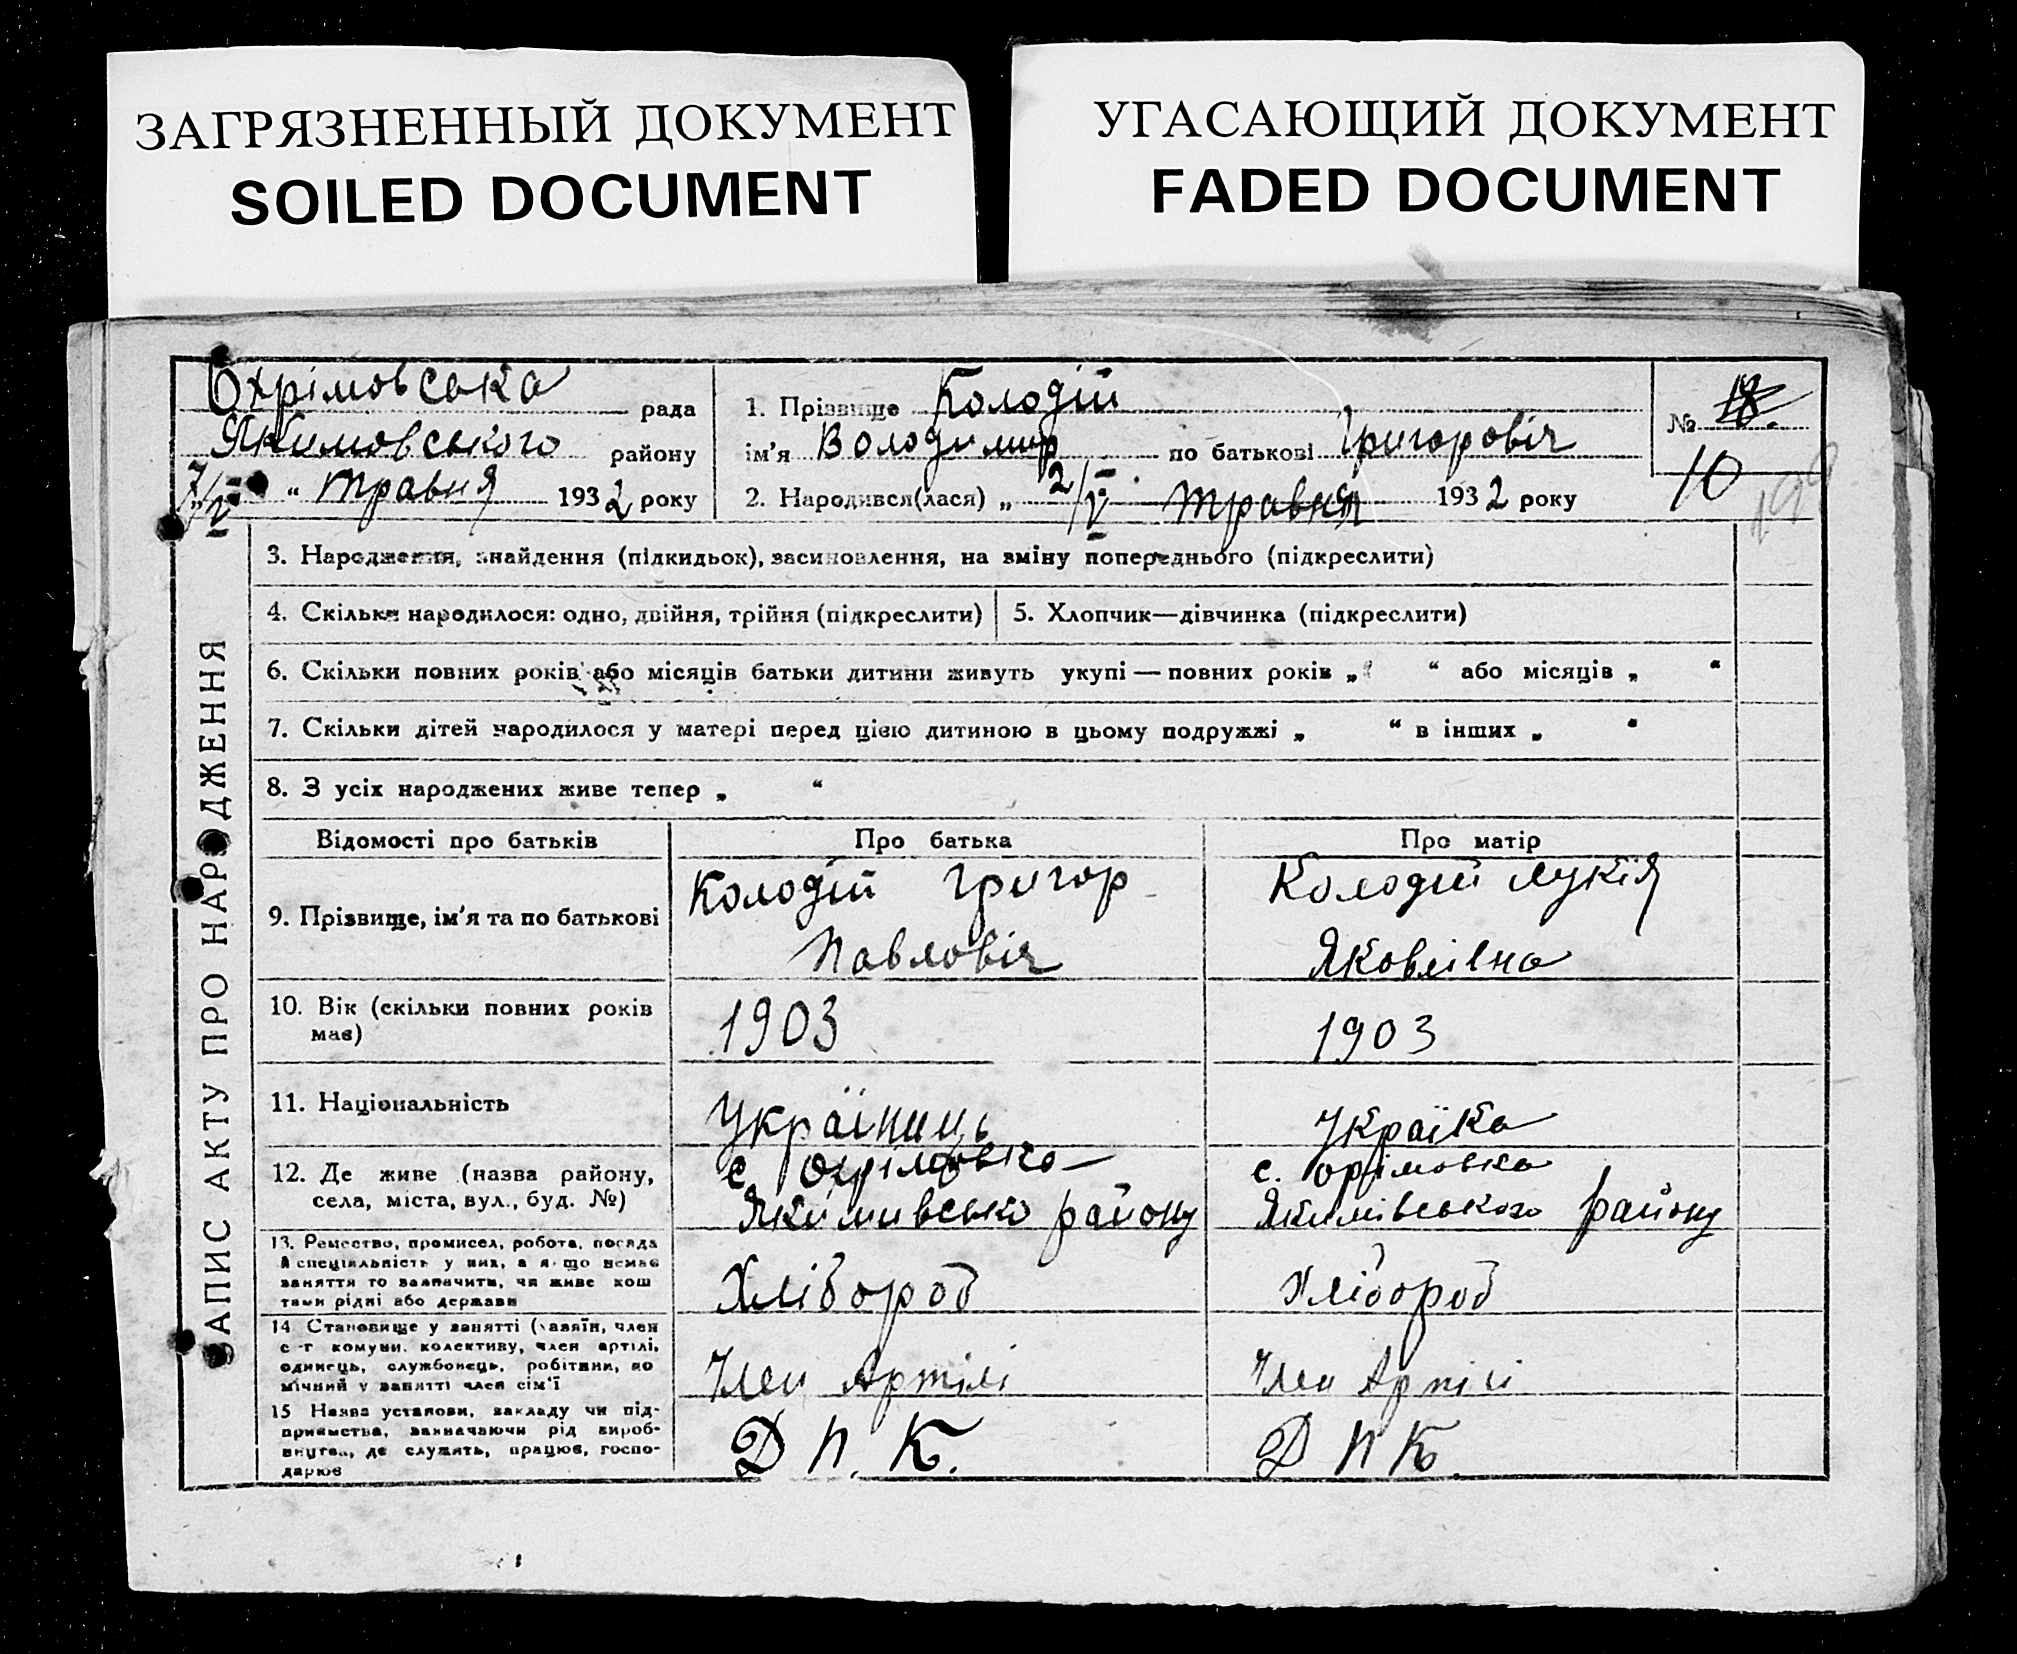 ЗАГРЯЗНЕННЫЙ ДОКУМЕНТ
SOILED DOCUMENT
УГАСАЮЩИЙ ДОКУМЕНТ
FADED DOCUMENT
Охрімовська рада
Якимовського району
7/V " травня 1932 року
1. Прізвище Колодій
ім'я Володимир по батькові Григоровіч
2. Народився(лася) „ 2/V травня 1932 року
№ 18.
10
ЗАПИС АКТУ ПРО НАРОДЖЕННЯ
3. Народження, знайдення (підкидьок), засиновлення, на зміну попереднього (підкреслити)
4. Скільки народилося: одно, двійня, трійня (підкреслити)
5. Хлопчик—дівчинка (підкреслити)
6. Скільки повних років або місяців батьки дитини живуть укупі — повних років „ “ або місяців „ “
7. Скільки дітей народилося у матері перед цією дитиною в цьому подружжі „ “ в інших „ “
8. З усіх народжених живе тепер „ “
Відомості про батьків Про батька Про матір
9. Прізвище, ім'я та по батькові
Колодій Григор
Павловіч
Колодій Лукія
Яковлівна
10. Вік (скільки повних років
має)
1903
1903
11. Національність
Україниць
Українка
12. Де живе (назва району,
села, міста, вул., буд. №)
с. Охрімовка
Якимивсько району
с. Орімовка
Якимівського району
13. Ремество, промисел, робота, посада
й спеціяльність у них, а якщо немає
заняття то зазначити, чи живе кош
тами рідні або держави
Хлібороб
Хлібороб
14 Становище у занятті (хазяїн, член
с-г комуни, колективу, член артілі,
одинець, службовець, робітник, по
мічний у занятті член сім'ї
Член Артілі
Член Артілі
15 Назва установи, закладу чи під-
приємства, зазначаючи рід вироб-
ництва, де служить, працює, госпо-
дарює
Д П. К.
Д П К.